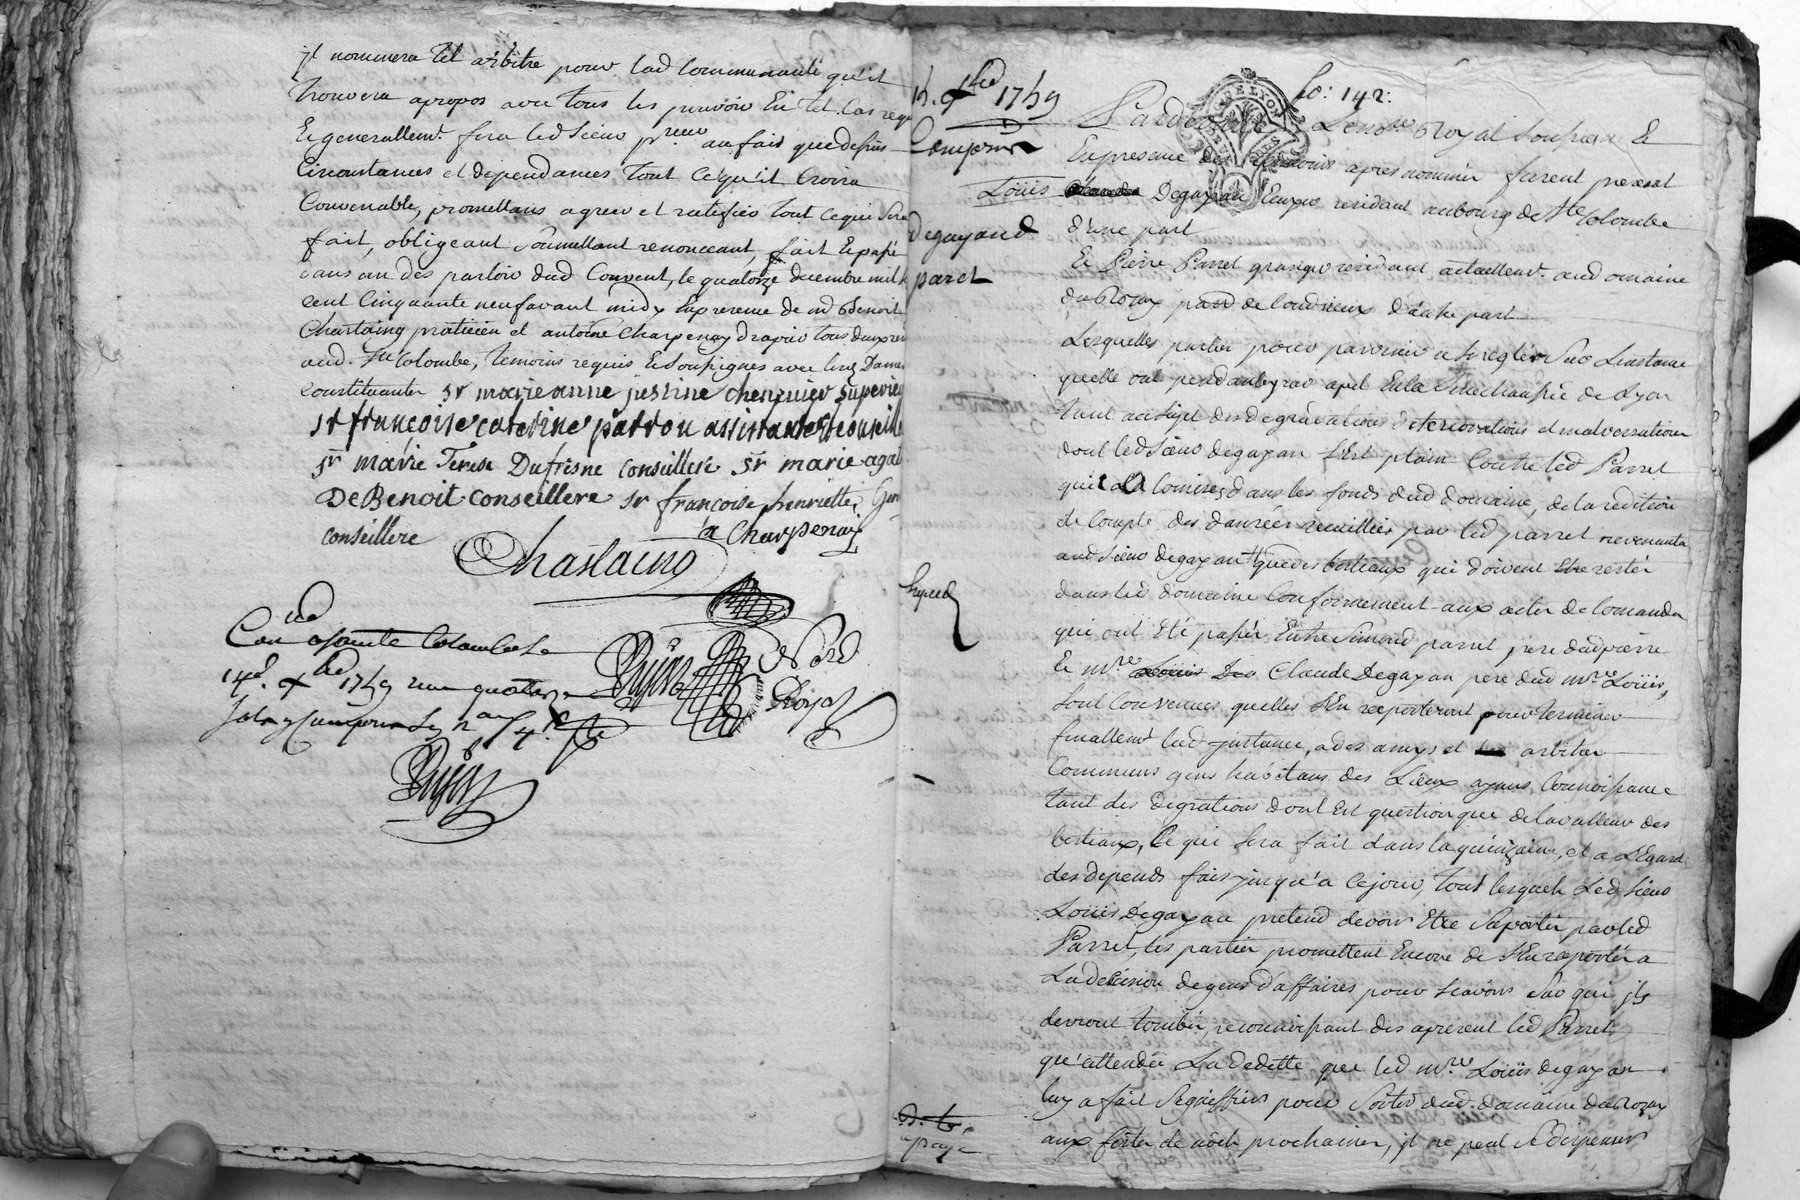 jl nommera tel arbitre pour lad communauté qu'il
trouvera apropos avec tous les pouvoir En tel cas req
Et generallemt. fera led Sieur preur au fait que depuis
Circonstances et dependances tout ce qu'il Croira
Convenable, promettans agreer et ratifier tout cequi Sera
fait, obligeant Soumettant renonceant, fait Et passé
dans un des parloir dud Couvent, le quatorze decembre mil
cent Cinquante neuf avant midy En presence de md Benoit
Chastaing praticien et antoine Charpenay drapier tous deux
aud. Ste Colombe, temoins requis Et Soussignes avec lesd Dames
constituantes sr marie anne justine cherpuier superieu
sr francoise caterine patron assistante et conseille
sr marie Terese Dufresne conseillere sr marie agat
De Benoit conseillere sr francoise henriette
conseillere
a Charpenay
Chastaing
Con a sainte Colombe le
14e. xbre 1759 reçu quatorze
Nord
Royal
fo: 142:
15. xbre 1759
Compromis
Degayand
paret
Pardevant Le nore Royal Soussigné Et
En presence des temoins apres nommés furent presents
Louis Degayan residant au bourg de Ste Colombe
d'une part
Et Pierre Parret granger residant actuellemt. au domaine
du Rozay passe de Condrieux d'autre part
Lesquelles parties pour parvenir a Se regler Sur Linstance
quelle ont pendante par apel En la Senechaussée de Lyon
tant au Sujet des degradations deteriorations et malversations
dont led Sieur degayan S'est plaint Contre led Parret
qu'il a Comises dans les fonds dud domaine, de la redition
de Compte des danrées recueillies par led parret revenants
aud Sieur degayan que des bestiaux qui doivent rester
dans led domaine Conformement aux actes de Comande
qui ont Eté passés Entre Simond parret pere dud pierre
Et mre Claude Degayan pere dud mre Louis,
Sont Convenues quelles S'En reporteront pour terminer
finallemt lad jnstance, a des amys et arbitres
Communs gens habitans des Lieux ayans Connoissance
tant des degrations dont Est question que de la valleur des
bestiaux, Ce qui Sera fait dans la quinzaine, et a L'Egard
des depends fais jusqu'a Cejour, tout lesquels Led Sieur
Louis Degayan pretend devoir Etre Suportés par led
Parret, les parties promettent Encore de S'En reporter a
La decision de gens d'affaires pour scavoir Sur qui jls
devront tomber, reconnoissant des apresent led Parret
qu'attendu La dedette que led mre Louis degayan
luy a fait Signiffier pour Sortir dud. domaine du Rozay
aux festes de noel prochaines, jl ne peut Se dispenser